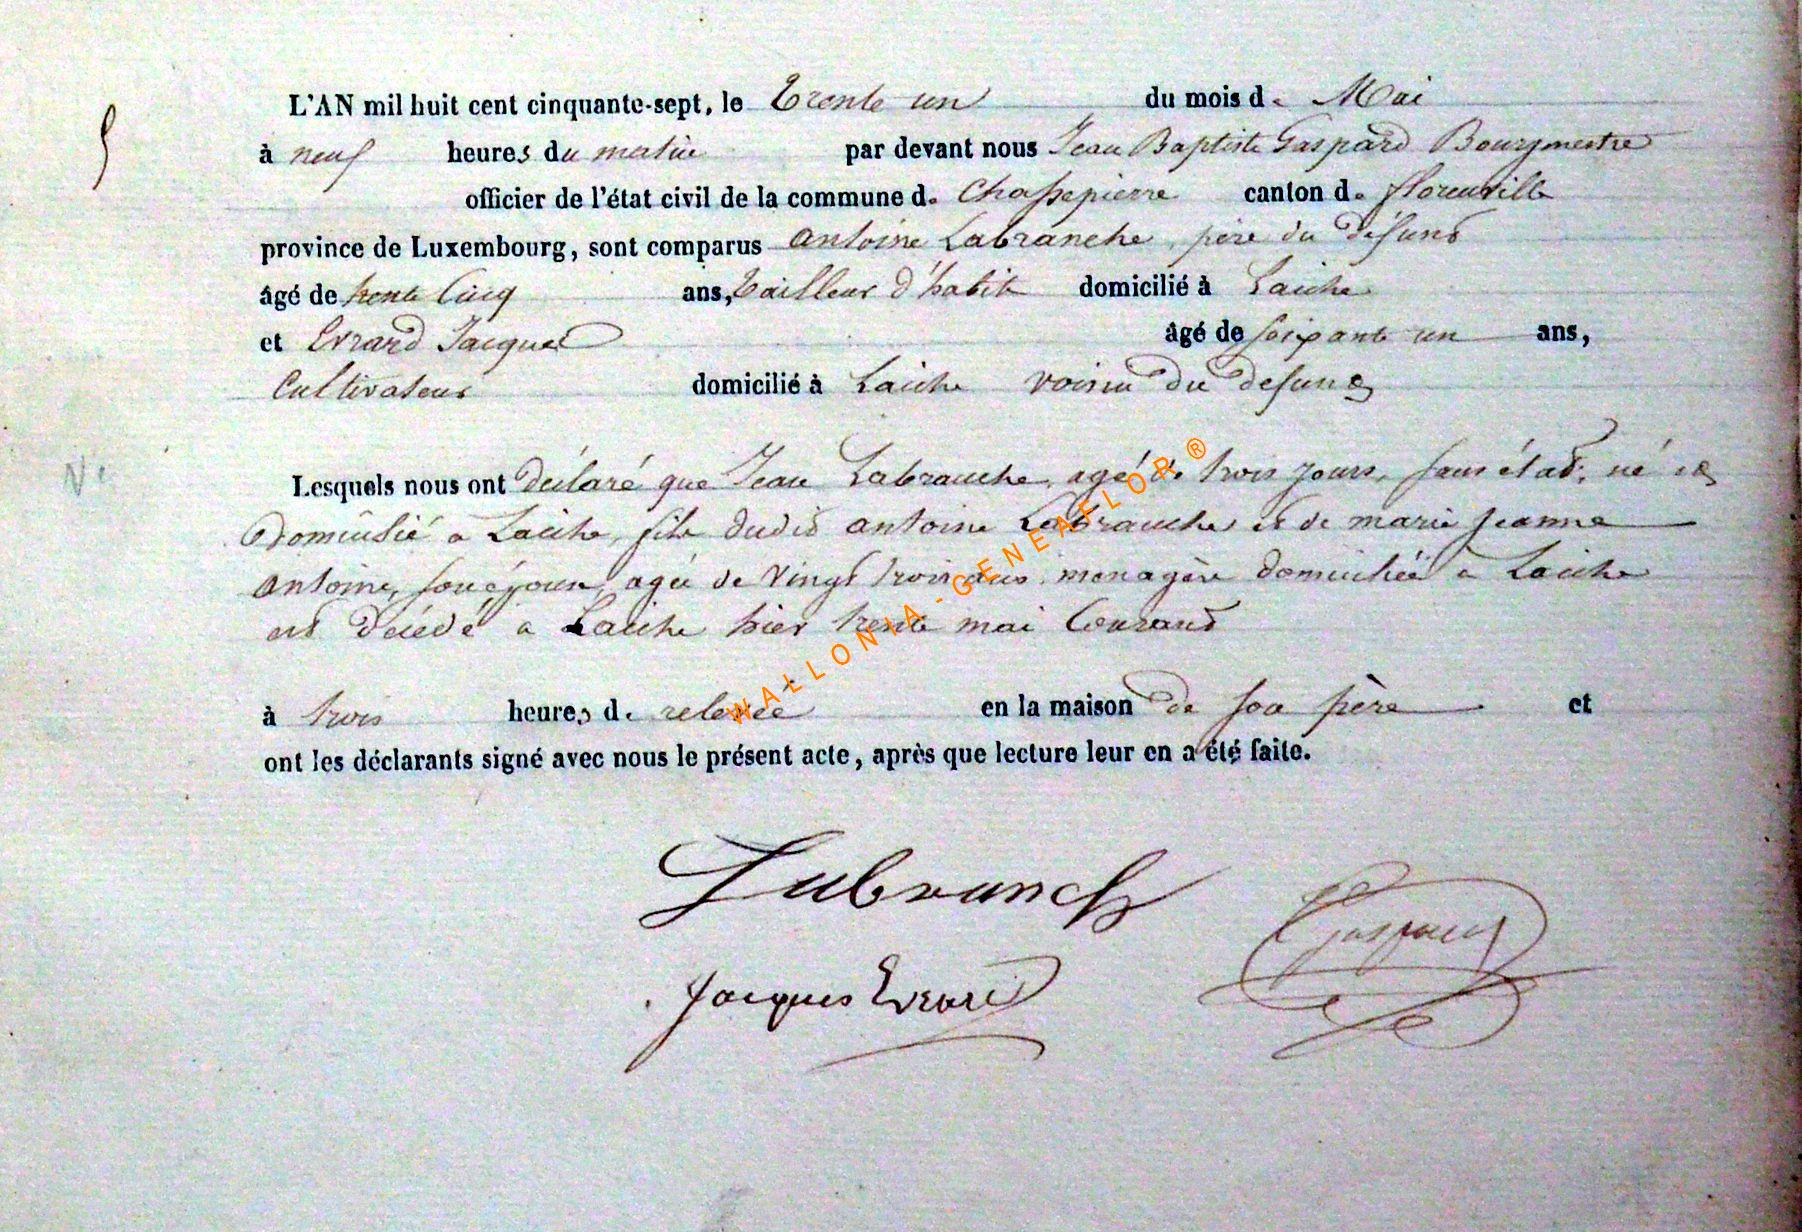 L'AN mil huit cent cinquante-sept, le Trente un du mois d. Mai
5
à neuf heures du matin par devant nous Jean Baptiste Gaspard Bourgmestre
officier de l'état civil de la commune d. Chassepierre canton d. florenville
province de Luxembourg, sont comparus antoine Labranche, père du défunt
âgé de trente Cinq ans, Tailleur d'habit domicilié à Laiche
et Evrard Jacques âgé de soixante un ans,
Cultivateur domicilié à Laiche voisin du defunt
Lesquels nous ont déclaré que Jean Labranche, agé de trois jours, sans état, né et
Domicilié a Laiche, fils dudit antoine Labranche et de marie jeanne
antoine, son épouse, agée de Vingt trois ans, menagère domiciliée a Laiche
est décédé a Laiche hier trente mai Courant
à trois heures d. relevée en la maison de son père et
ont les déclarants signé avec nous le présent acte, après que lecture leur en a été faite.
Labranch
Gaspard
Jacques Evrard
WALLONIA-GENEAFLOR ®